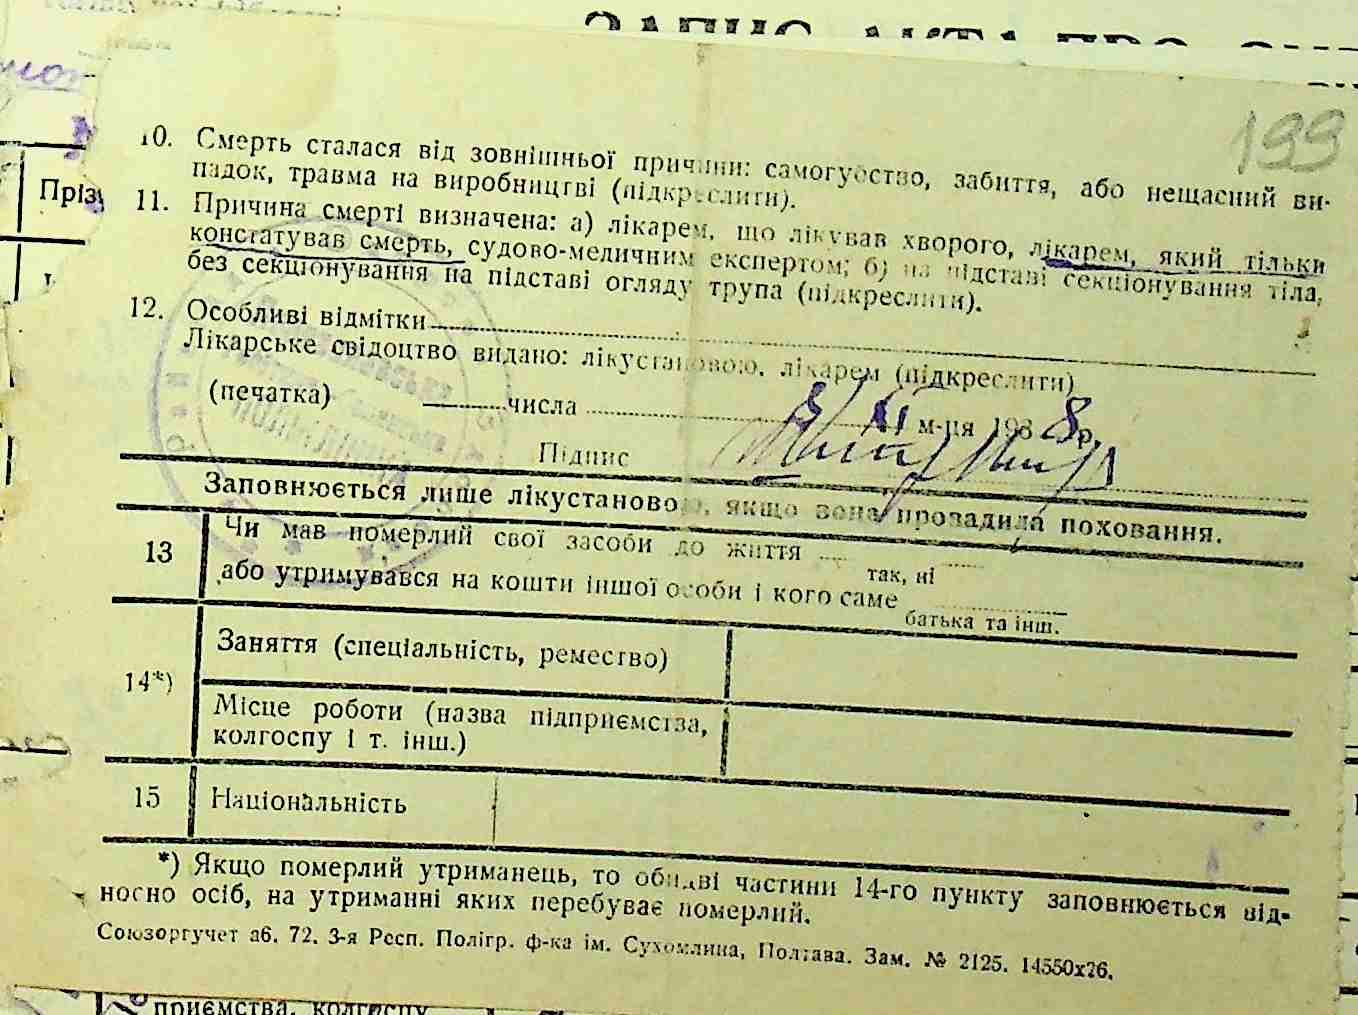 199
10. Смерть сталася від зовнішньої причини: самогубство, забиття, або нещасний ви-
падок, травма на виробництві (підкреслити).
Прізв
11. Причина смерті визначена: а) лікарем, що лікував хворого, лікарем, який тільки
констатував смерть, судово-медичним експертом; б) на підставі секціонування тіла,
без секціонування на підставі огляду трупа (підкреслити).
12. Особливі відмітки
Лікарське свідоцтво видано: лікустановою, лікарем (підкреслити)
(печатка) числа м-ця 1938 р.
Підпис
Заповнюється лише лікустановою, якщо вона провадила поховання.
13 Чи мав померлий свої засоби до життя
так, ні
або утримувався на кошти іншої особи і кого саме
батька та інш.
14*) Заняття (спеціальність, ремество)
Місце роботи (назва підприємства,
колгоспу і т. інш.)
15 Національність
*) Якщо померлий утриманець, то обидві частини 14-го пункту заповнюється від-
носно осіб, на утриманні яких перебуває померлий.
Союзоргучет аб. 72. 3-я Респ. Полігр. ф-ка ім. Сухомлина, Полтава. Зам. № 2125. 14550х76.
приємства, колгоспу